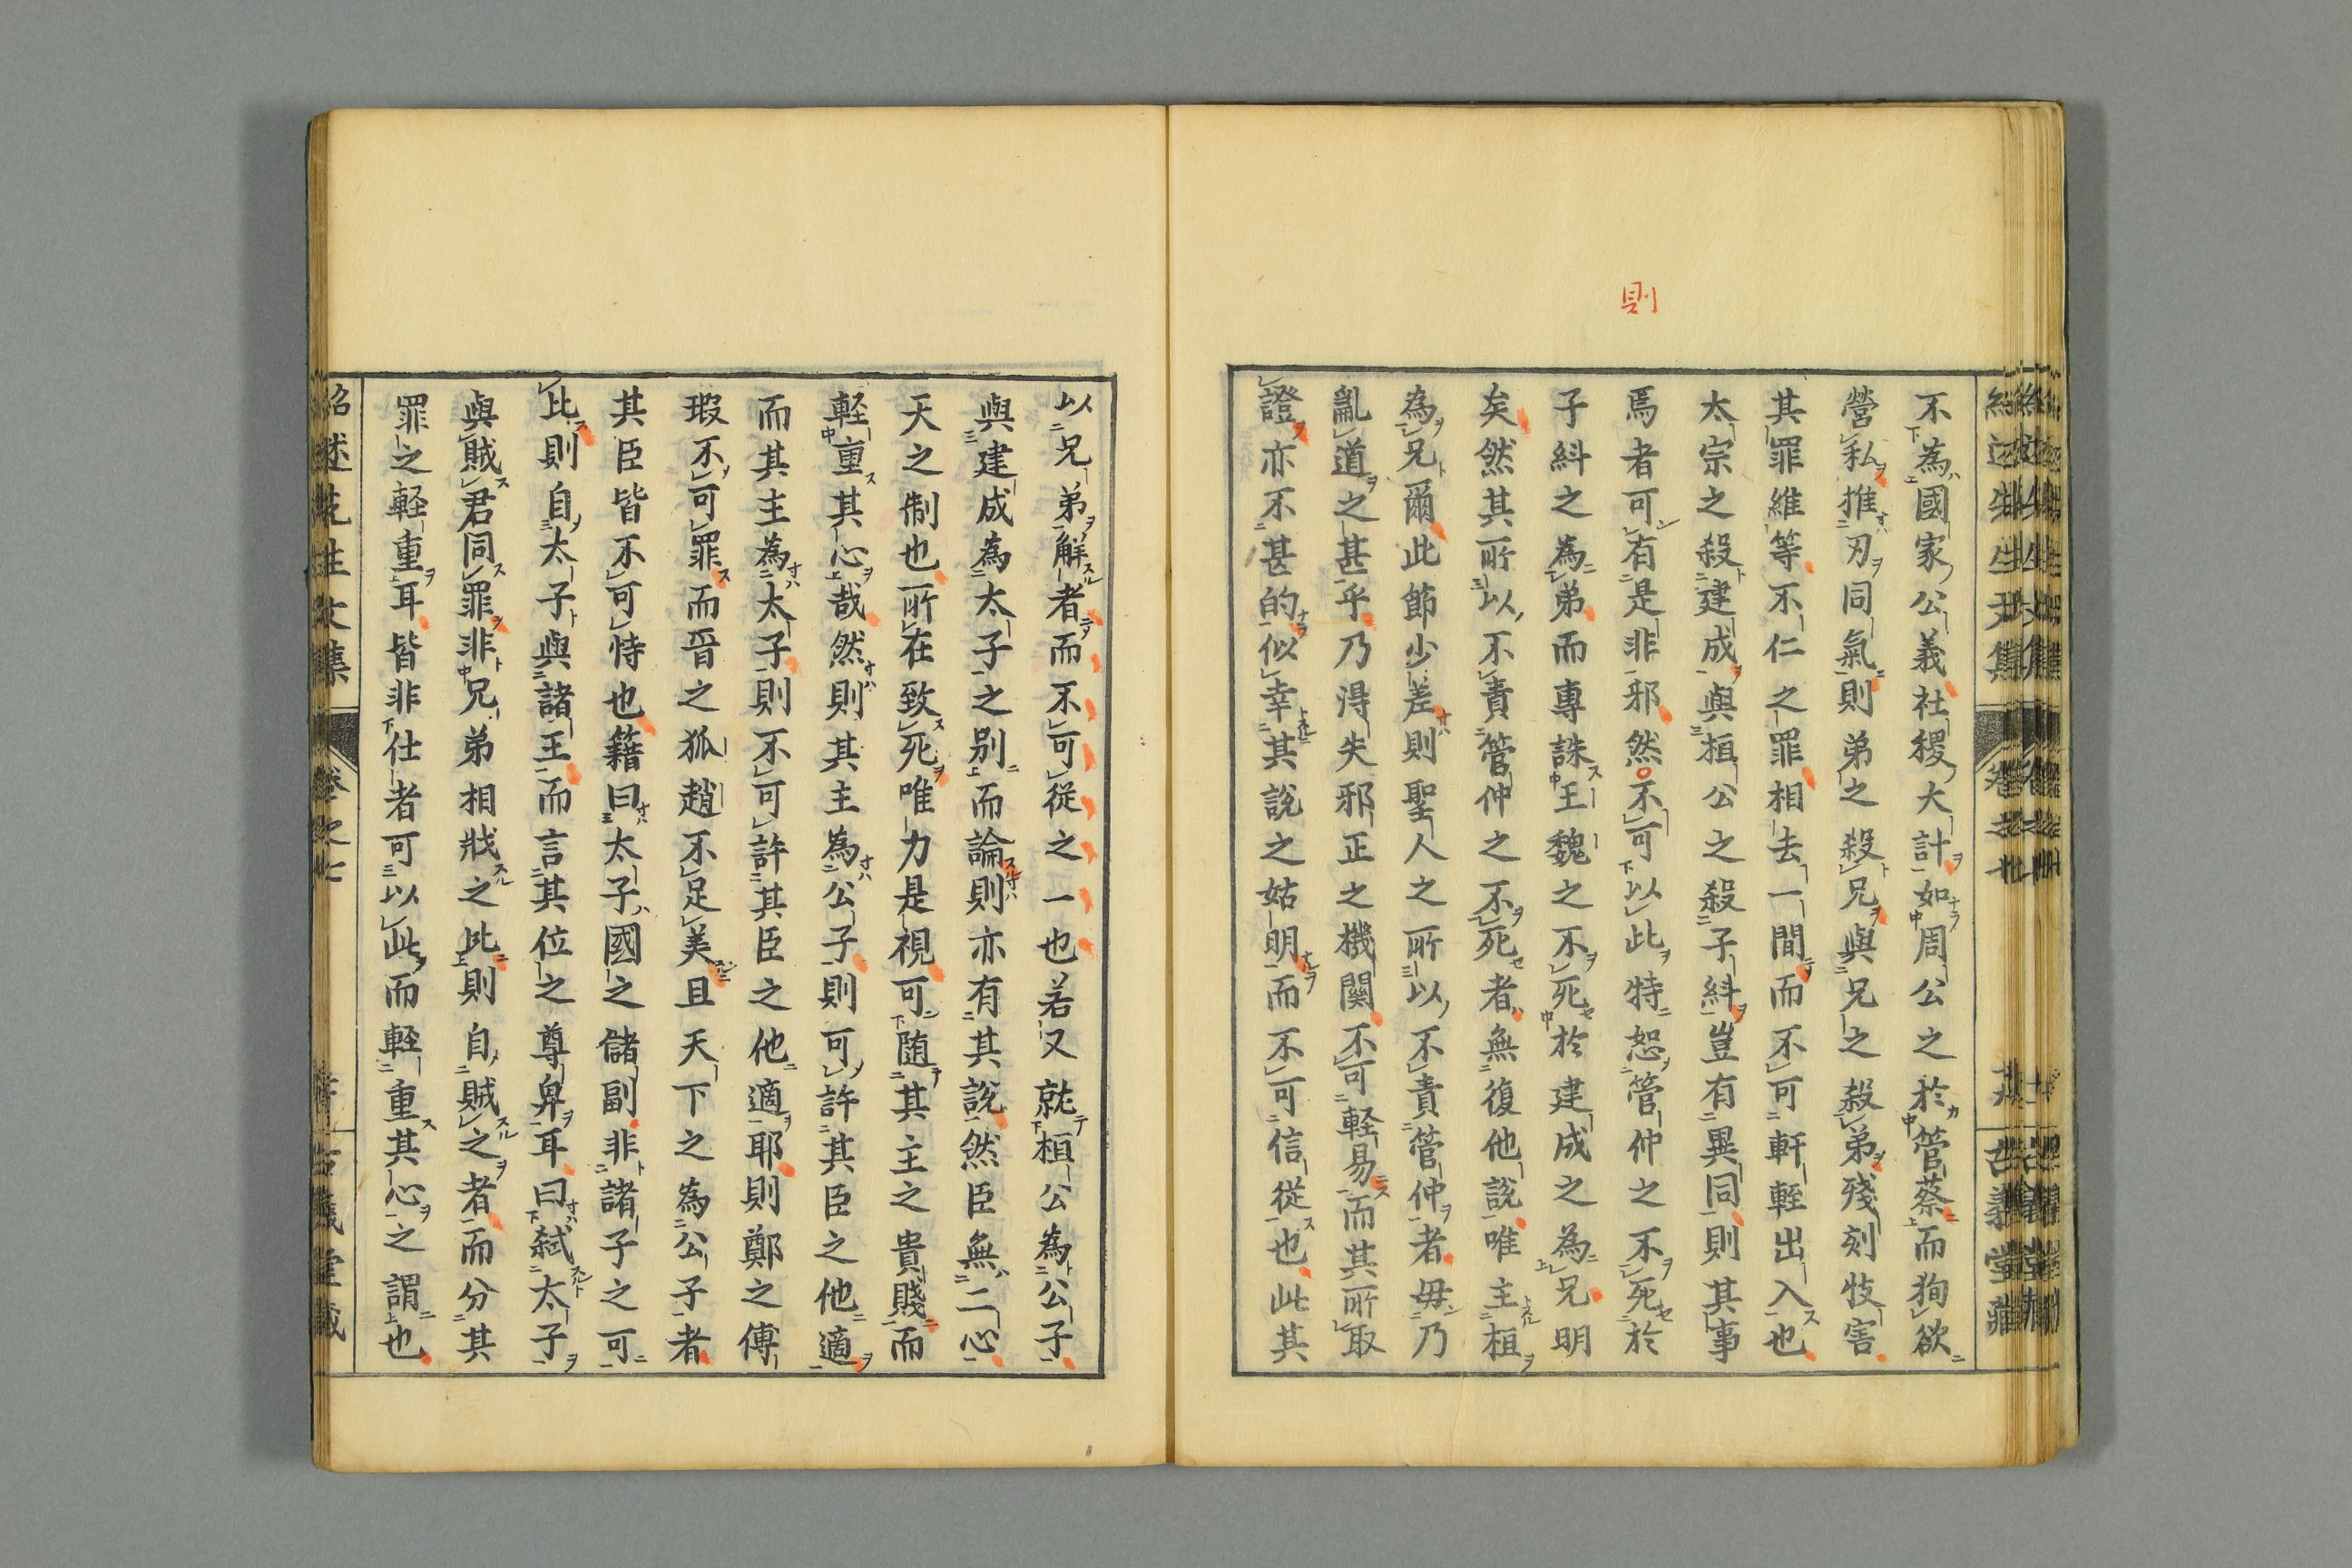 則
不為國家公義社稷大計如周公之於管蔡而狥欲
營私推刃同氣則弟之殺兄與兄之殺弟殘刻忮害
其罪維等不仁之罪相去一間而不可軒輊出入也
太宗之殺建成與桓公之殺子糾豈有異同則其事
焉者可有是非邪然不可以此特恕管仲之不死於
子糾之為弟而專誅王魏之不死於建成之為兄明
矣然其所以不責管仲之不死者無復他說唯主桓
為兄爾此節少差則聖人之所以不責管仲者毋乃
亂道之甚乎乃得失邪正之機關不可輕易而其所取
證亦不甚的似幸其說之姑明而不可信從也此其
以兄弟解者而不可從之一也若又就桓公為公子
與建成為太子之別而論則亦有其說然臣無二心
天之制也所在致死唯力是視可隨其主之貴賤而
軽重其心哉然則其主為公子則可許其臣之他適
而其主為太子則不可許其臣之他適耶則鄭之傅
瑕不可罪而晉之狐趙不足美且天下之為公子者
其臣皆不可恃也籍曰太子國之儲副非諸子之可
比則自太子與諸王而言其位之尊卑耳曰弒太子
與賊君同罪非兄弟相戕之比則自賊之者而分其
罪之軽重耳皆非仕者可以此而軽重其心之謂也
紹述先生文集
卷之七
古義堂藏